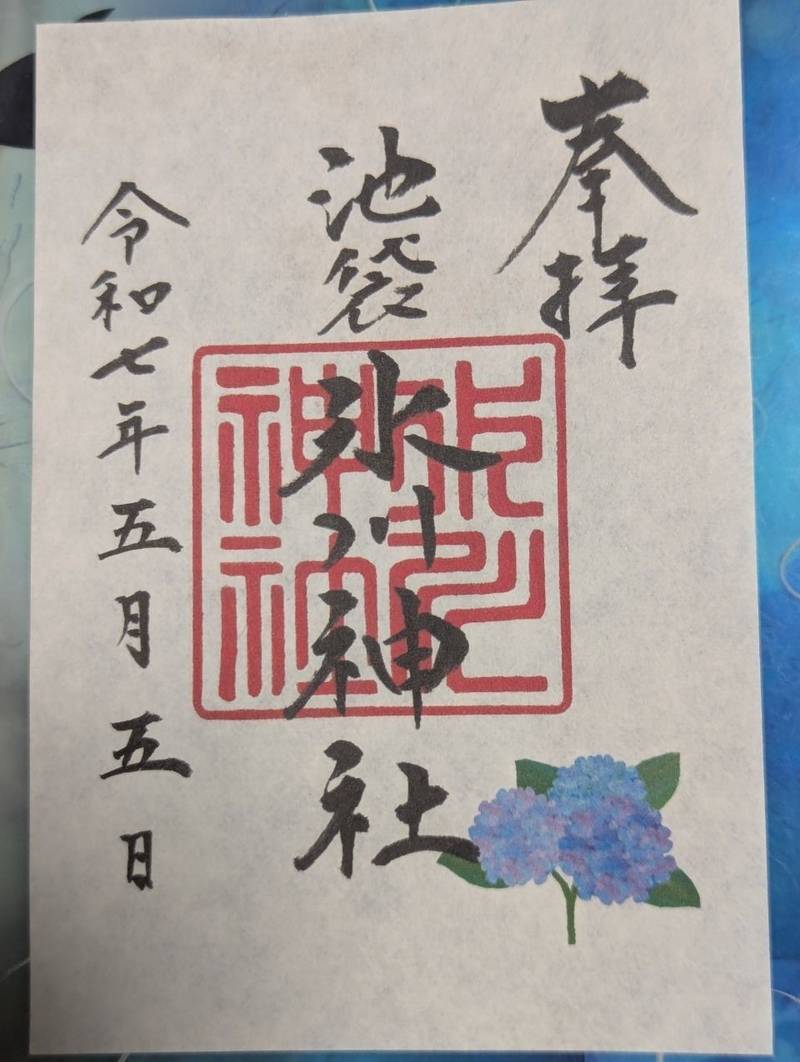 奉拝
池袋
氷川神社
氷川
神社
令和七年五月五日